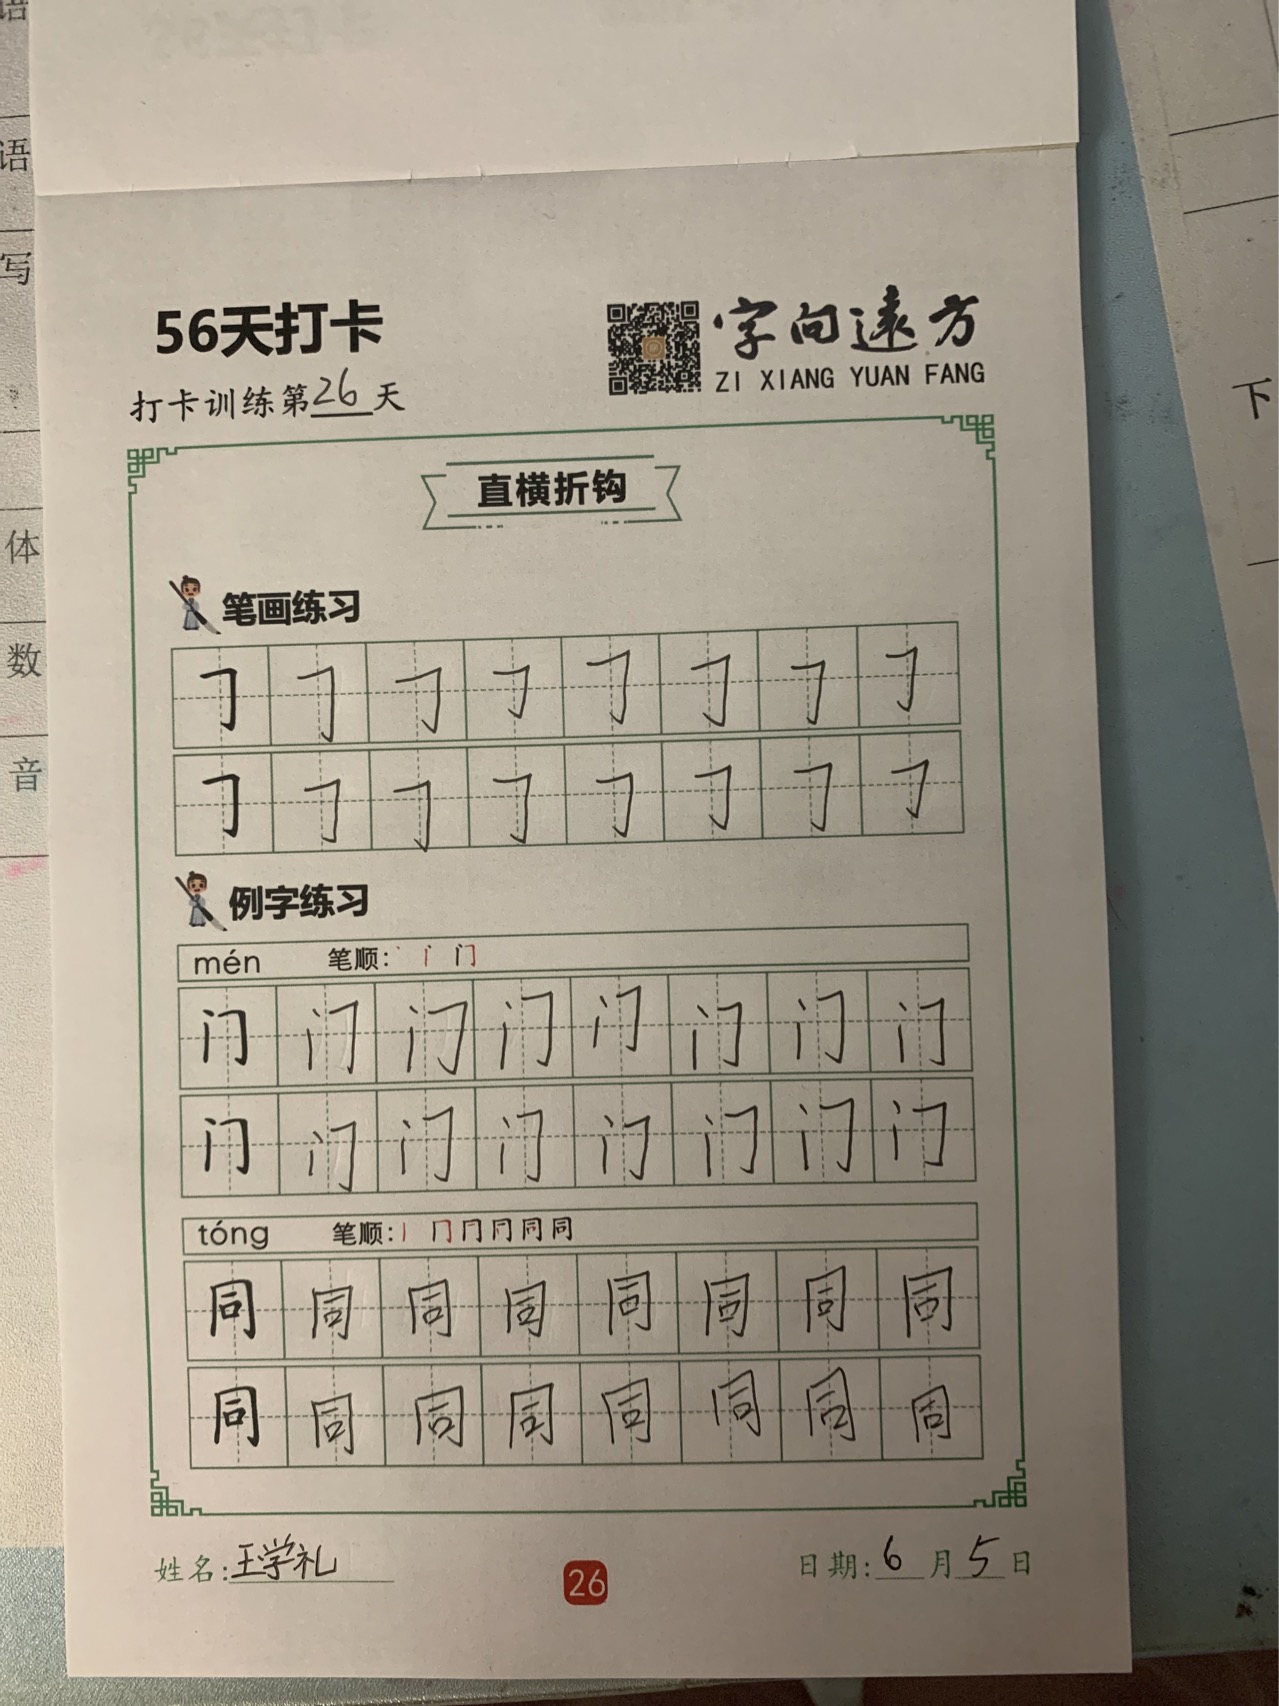 语
语
写
体
数
音
下
56天打卡
字向遠方
ZI XIANG YUAN FANG
打卡训练第26天
直横折钩
笔画练习
𠃌 𠃌 𠃌 𠃌 𠃌 𠃌 𠃌 𠃌
𠃌 𠃌 𠃌 𠃌 𠃌 𠃌 𠃌 𠃌
例字练习
mén 笔顺: 丶 门
门 门 门 门 门 门 门 门
门 门 门 门 门 门 门 门
tóng 笔顺: 丨 冂 同 同
同 同 同 同 同 同 同 同
同 同 同 同 同 同 同 同
姓名:王学礼
26
日期:6月5日